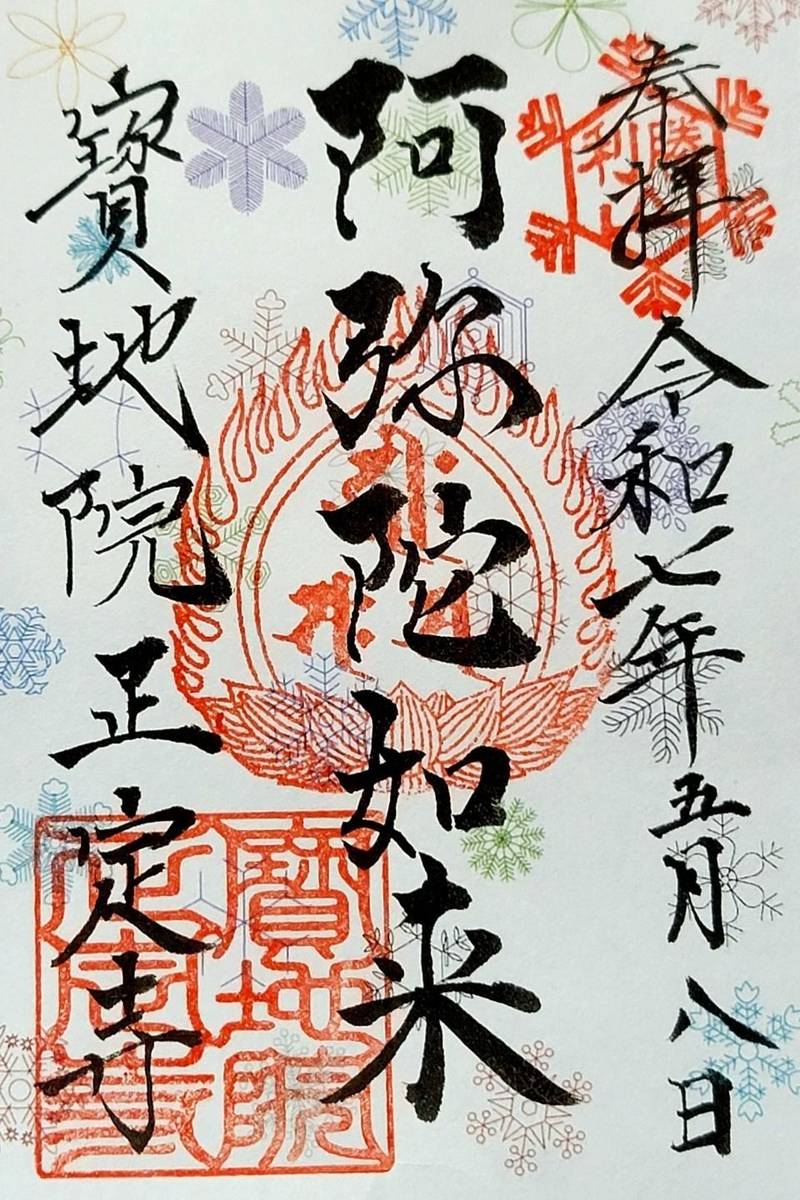 奉拜 令和七年五月八日
阿弥陀如来
寶地院 正定寺